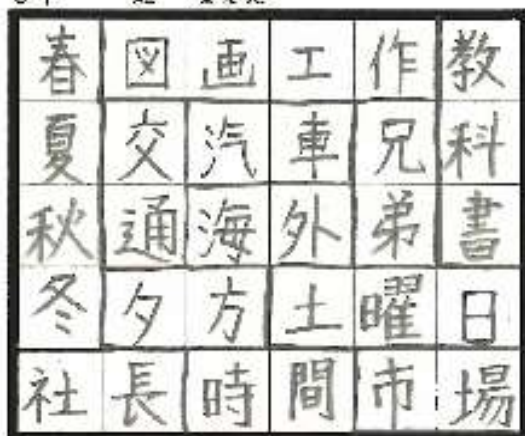 春図画工作教
夏交汽車兄科
秋通海外弟書
冬夕方土曜日
社長時間市場